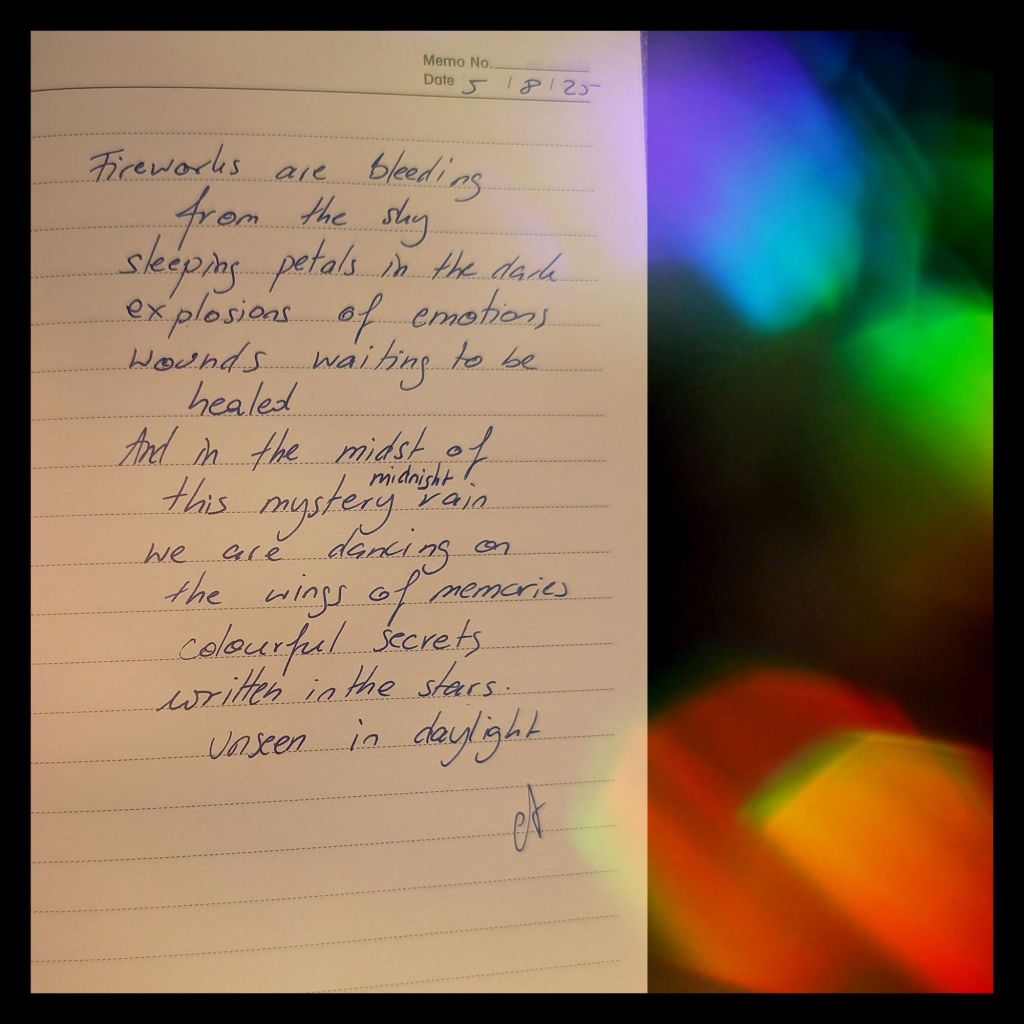 Memo No.
Date 5 / 8 / 25
Fireworks are bleeding
from the sky
sleeping petals in the dark
explosions of emotions
wounds waiting to be
healed
And in the midst of
midnight
this mystery rain
we are dancing on
the wings of memories
colourful secrets
written in the stars.
unseen in daylight